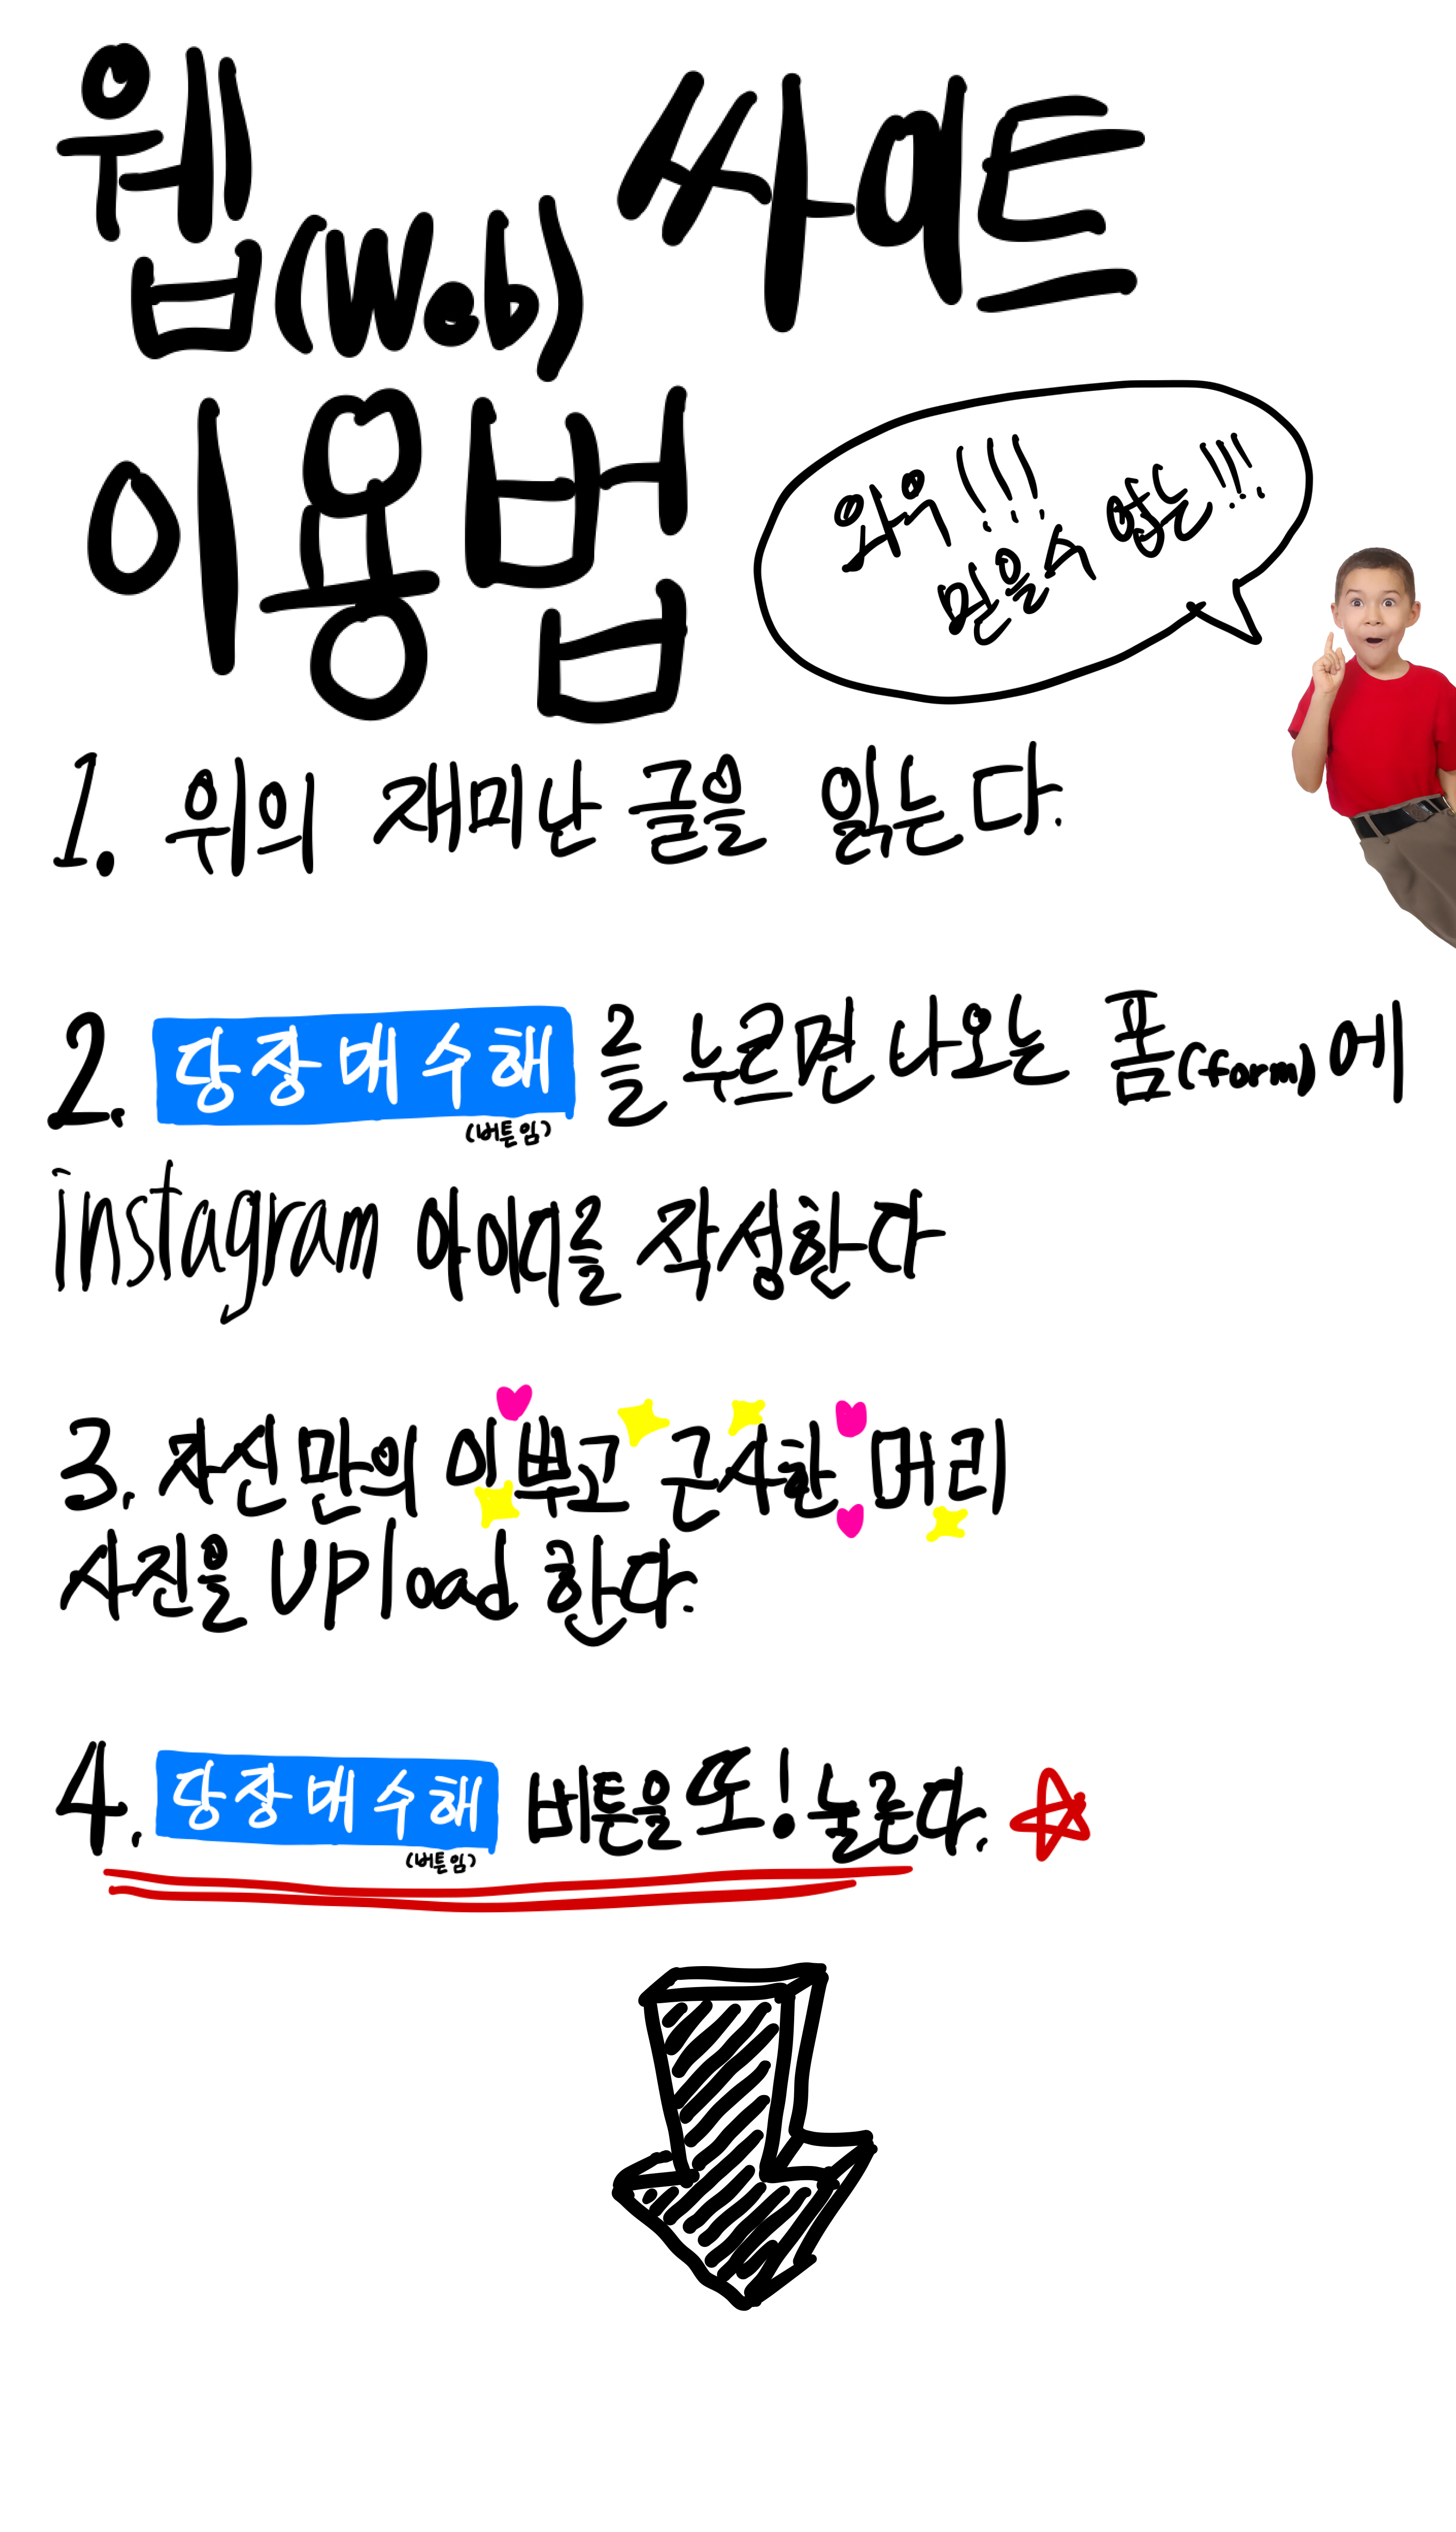 웹(Web) 싸이트
이용법
와우!!!
믿을 수 없는!!!
1. 위의 재미난 글을 읽는다.
2. 당장매수해 를 누르면 나오는 폼(form)에
(버튼임)
instagram 아이디를 작성한다
3. 자신만의 이쁘고 근사한 머리
사진을 UPload 한다.
4. 당장매수해 버튼을 또! 눌른다.
(버튼임)